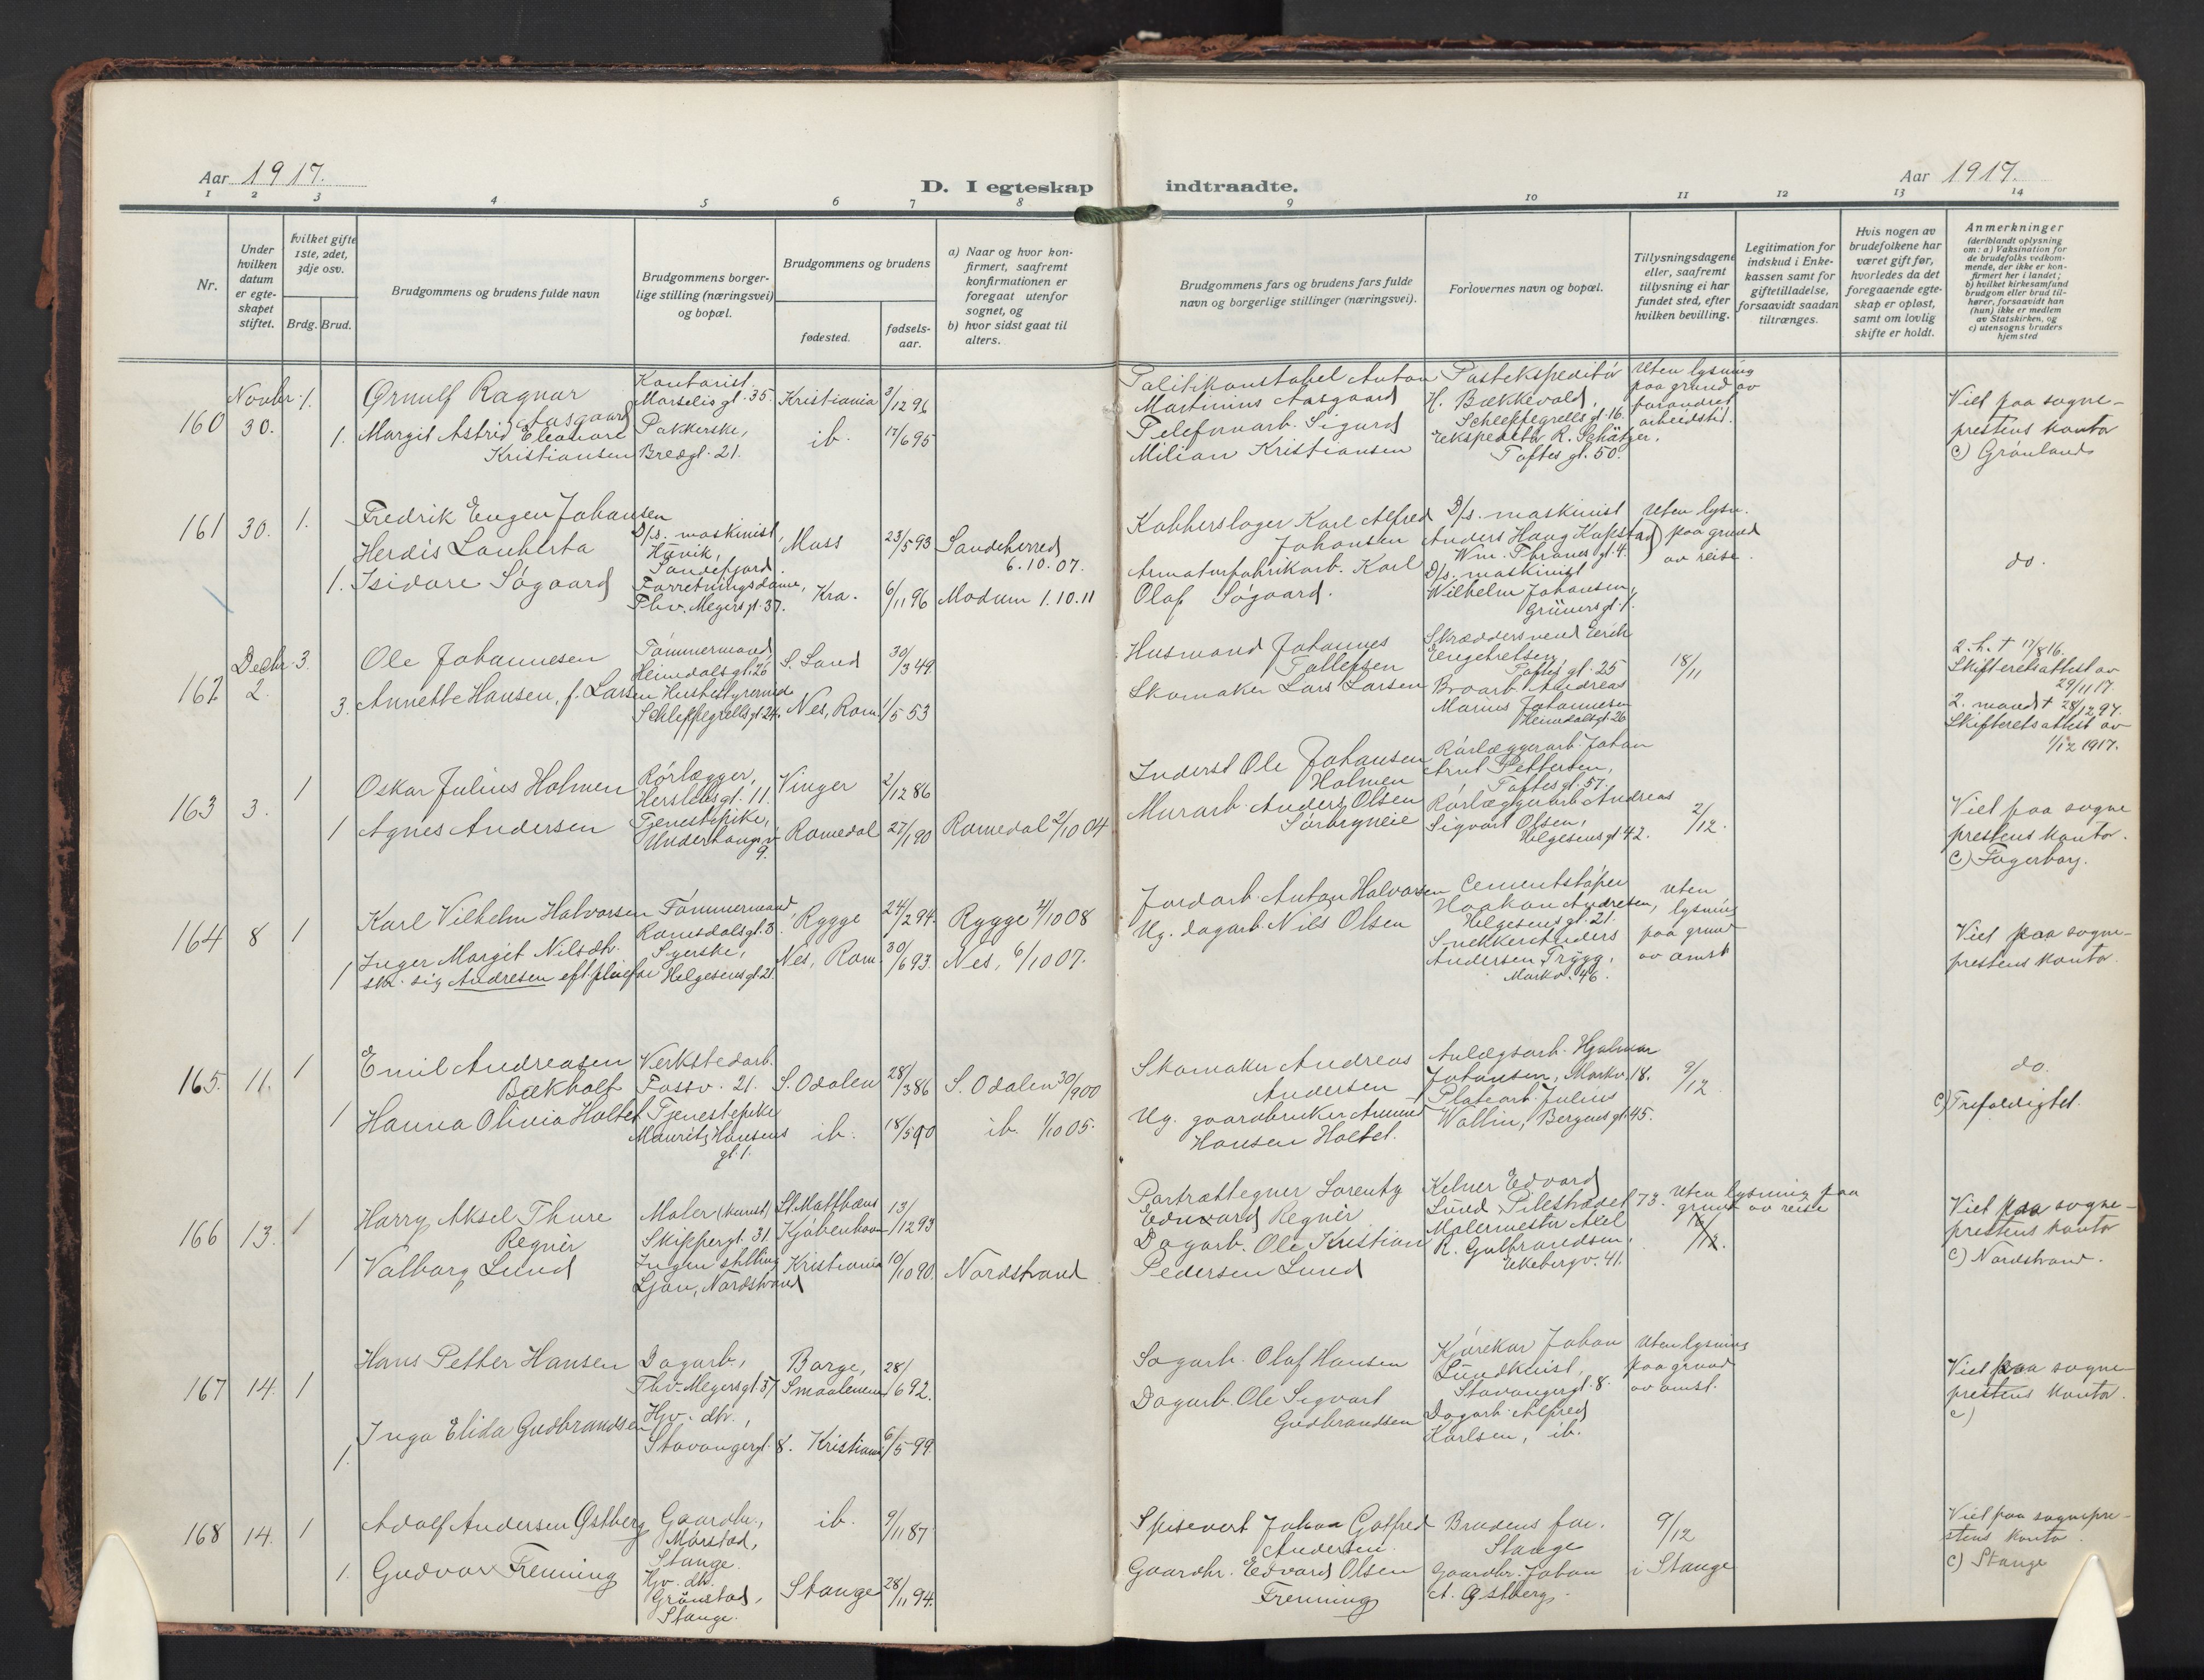 Aar 1917.
D. I egteskap indtraadte.
Aar 1917.
1 2 3 4 5 6 7 8 9 10 11 12 13 14
Nr.
Under hvilken datum er egteskapet stiftet.
Hvilket gifte 1ste, 2det, 3dje osv.
Brdg. Brud.
Brudgommens og brudens fulde navn
Brudgommens borgerlige stilling (næringsvei) og bopæl.
Brudgommens og brudens
fødested.
fødselsaar.
a) Naar og hvor konfirmert, saafremt konfirmationen er foregaat utenfor sognet, og
b) hvor sidst gaat til alters.
Brudgommens fars og brudens fars fulde navn og borgerlige stillinger (næringsvei).
Forlovernes navn og bopæl.
Tillysningsdagene eller, saafremt tillysning ei har fundet sted, efter hvilken bevilling.
Legitimation for indskud i Enkekassen samt for giftetilladelse, forsaavidt saadan tiltrænges.
Hvis nogen av brudefolkene har været gift før, hvorledes da det foregaaende egteskap er opløst, samt om lovlig skifte er holdt.
Anmerkninger
(deriblandt oplysning om: a) Vaksination for de brudefolks vedkommende, der ikke er konfirmert her i landet; b) hvilket kirkesamfund brudgom eller brud tilhører, forsaavidt han (hun) ikke er medlem av Statskirken, og c) utensogns bruders hjemsted
160 Novbr. 30. 1.
Ørnulf Ragnar Aasgaard
Kontorist. Marselis gt. 35.
Kristiania 3/12 96
Politikonstabel Anton Martinius Aasgaard
Postekspeditør H. Bækkevold, Schleppegrells gt. 16.
Uten lysning paa grund av forandret arbeidstid.
Viet paa sogneprestens kontor
c) Grønlands
1. Margit Astrid Eleonore Kristiansen
Pakkerske, Bredgt. 21.
ib. 17/6 95
Telefonarb. Sigurd Milian Kristiansen
Ekspeditør R. Schätzer, Toftes gt. 50.
161 30. 1.
Fredrik Eugen Johansen
D/s. maskinist, Havik, Sandefjord.
Moss 23/5 93 Sandeherred 6.10.07.
Kobberslager Karl Alfred Johansen
D/s. maskinist Anders Haag Kapstad Wm. Thranes gt. 4.
Uten lysn. paa grund av reise.
do.
1. Herdis Lauberta Isidore Søgaard
Forretningsdame, Thv. Meyers gt. 37.
Kra. 6/11 96 Modum 1.10.11
Armaturfabrikarb. Karl Olaf Søgaard.
D/s. maskinist Wilhelm Johansen, Grüners gt. 1.
162 Decbr. 2. 3.
Ole Johannesen
Tømmermand, Heimdals gt. 26
S. Land 30/3 49
Husmand Johannes Tollefsen
Skræddersvend Erich Engebretsen Toftes gt. 25
18/11
2. h. † 17/8 16. Skifteretsattest av 29/11 17.
3. Annette Hansen, f. Larsen
Husbestyrerinde Schleppegrells gt. 24.
Nes, Rom. 1/5 53
Skomaker Lars Larsen
Broarb. Andreas Marius Johannesen Heimdalsgt. 26
2. mand † 28/12 97. Skifteretsattest av 1/12 1917.
163 3. 1
Oskar Julius Holmen
Rørlægger, Herslebs gt. 11.
Vinger 2/12 86
Inderst Ole Johansen Holmen
Rørlæggerarb. Johan Arnt Pettersen, Toftes gt. 57.
1 Agnes Andersen
Tjenestepike, Underhaugsv. 9.
Romedal 27/1 90 Romedal 2/10 04
Murarb. Anders Olsen Sørbryneie
Rørlæggerarb. Andreas Sigvart Olsen, Helgesens gt. 42.
2/12.
Viet paa sogneprestens kontor.
c) Fagerborg.
164 8 1
Karl Vilhelm Halvorsen
Tømmermand, Romsdals gt. 3.
Rygge 24/2 94. Rygge 4/10 08
Jordarb. Anton Halvorsen
Cementstøper Haakon Andresen, Helgesens gt. 21.
Uten lysning paa grund av omst.
Viet paa sogneprestens kontor.
1 Inger Margit Nilsdtr. sk. sig Andresen eft. pleiefar
Syerske, Helgesens gt. 21.
Nes, Rom. 30/6 93. Nes, 6/10 07.
Ug. dagarb. Nils Olsen
Snekker Anders Andersen Trygg, Markv. 46.
165. 11. 1
Emil Andreasen Bækholt
Verkstedarb. Fossv. 21.
S. Odalen 28/3 86 S. Odalen 30/9 00
Skomaker Andreas Andersen
Anlægsarb. Hjalmar Johansen, Markv. 18.
9/12
do.
c) Trefoldighet.
1 Hanna Olivia Holtet
Tjenestepike Mauritz Hansens gt. 1.
ib. 18/5 90 ib. 1/10 05.
Ug. gaardbruker Amund Hansen Holtet.
Platearb. Julius Wallin, Bergens gt. 45.
166 13. 1
Harry Aksel Thure Regnér
Maler (kunst) Skippergt. 31.
St. Matthæus Kjøbenhavn 13/12 93
Portrættegner Lorentz Edward Regnér
Kelner Edvard Lund Pilestrædet 73.
Uten lysning paa grund av reise
Viet paa sogneprestens kontor
c) Nordstrand.
1 Valborg Lund
Ingen stilling Ljan, Nordstrand
Kristiania 10/10 90. Nordstrand
Dagarb. Ole Kristian Pedersen Lund
Malermester Axel R. Gulbrandsen, Ekebergv. 41.
167 14. 1
Hans Petter Hansen
Dagarb., Thv. Meyers gt. 37
Borge, Smaalenene 28/6 92.
Sagarb. Olaf Hansen
Kjørekar Johan Lundkvist, Stavangergt. 8.
Uten lysning paa grund av omst.
Viet paa sogneprestens kontor.
c)
1. Inga Elida Gudbrandsen
Hjv. dtr., Stavangergt. 8.
Kristiania 6/5 99.
Dagarb. Ole Sigvart Gudbrandsen
Dagarb. Alfred Karlsen, ib.
168 14. 1
Adolf Andersen Østberg
Gaardbr., Mørstad, Stange.
ib. 9/11 87
Spisevert Johan Gotfred Andersen.
Brudens far. Stange
9/12 i Stange
Viet paa sogneprestens kontor.
c) Stange
1. Gudvor Frenning
Hjv. dtr. Grønstad, Stange.
Stange 28/11 94.
Gaardbr. Edvard Olsen Frenning
Gaardbr. Johan A. Østberg.